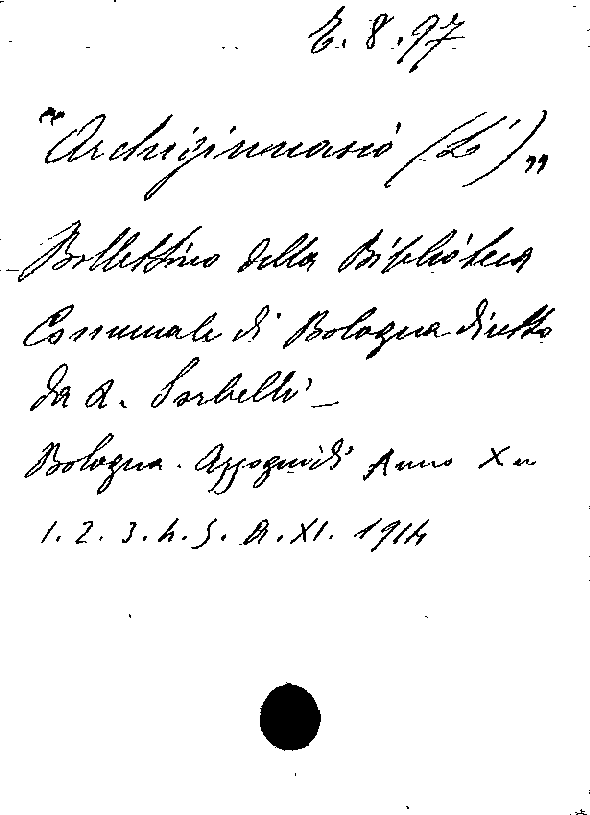 E. 8. 97
"Archiginnasio (L')„
Bollettino della Biblioteca
Comunale di Bologna diretto
da A. Sorbelli –
Bologna. Azzoguidi Anno X n
1. 2. 3. 4. 5. A. XI. 1914